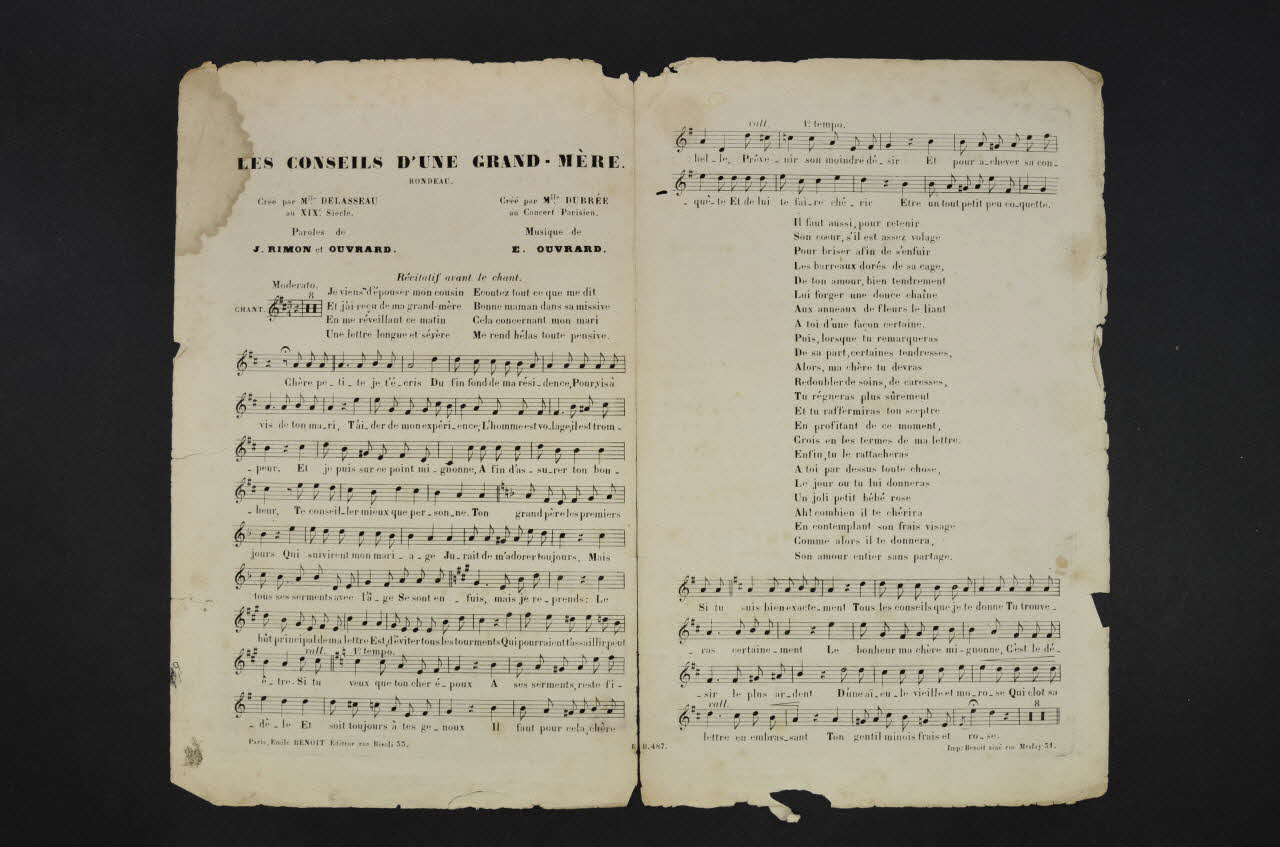 LES CONSEILS D'UNE GRAND-MÈRE.
RONDEAU.
Créé par Mlle DELASSEAU
au XIXe Siècle.
Créé par Mlle DUBRÉE
au Concert Parisien.
Paroles de
J. RIMON et OUVRARD.
Musique de
E. OUVRARD.
Récitatif avant le chant.
Moderato.
8
CHANT.
Je viens d'épouser mon cousin
Et j'ai reçu de ma grand-mère
En me réveillant ce matin
Une lettre longue et sévère
Ecoutez tout ce que me dit
Bonne maman dans sa missive
Cela concernant mon mari
Me rend hélas toute pensive.
Chère pe-ti-te je t'é-cris Du fin fond de ma rési-dence, Pour, vis à
vis de ton ma-ri, T'ai-der de mon expéri-ence, L'homme est vo-lage, il est trom-
-peur, Et je puis sur ce point mi-gnonne, A fin d'as-su-rer ton bon-
-heur, Te conseil-ler mieux que per-son-ne. Ton grand père les premiers
jours Qui suivirent mon mari-a-ge Ju-rait de m'adorer toujours, Mais
tous ses serments avec l'â-ge Se sont en-fuis, mais je re-prends: Le
bût principal de ma lettre Est, d'éviter tous les tourments Qui pourraient t'assaillir peut
rall. 1o tempo.
ê-tre. Si tu veux que ton cher é-poux A ses serments, reste fi-
-dè-le Et soit toujours à tes ge-noux Il faut pour cela, chère
Paris, Emile BENOIT Editeur rue Rivoli 33.
E.B.487.
rall. 1o tempo.
bel-le, Préve-nir son moindre dé-sir Et pour a-chever sa con-
-quê-te Et de lui te fai-re ché-rir Etre un tout petit peu coquette.
Il faut aussi, pour retenir
Son coeur, s'il est assez volage
Pour briser afin de s'enfuir
Les barreaux dorés de sa cage,
De ton amour, bien tendrement
Lui forger une douce chaîne
Aux anneaux de fleurs le liant
A toi d'une façon certaine.
Puis, lorsque tu remarqueras
De sa part, certaines tendresses,
Alors, ma chère tu devras
Redoubler de soins, de caresses,
Tu régneras plus sûrement
Et tu raffermiras ton sceptre
En profitant de ce moment,
Crois en les termes de ma lettre.
Enfin, tu le rattacheras
A toi par dessus toute chose,
Le jour ou tu lui donneras
Un joli petit bébé rose
Ah! combien il te chérira
En contemplant son frais visage
Comme alors il te donnera,
Son amour entier sans partage.
Si tu suis bien exacte-ment Tous les conseils que je te donne Tu trouve-
-ras certaine-ment Le bonheur ma chère mi-gnonne, C'est le dé-
-sir le plus ar-dent D'une aï-eu-le vieille et mo-ro-se Qui clot sa
rall.
8
lettre en embras-sant Ton gentil minois frais et ro-se.
Imp: Benoit ainé rue Meslay 31.